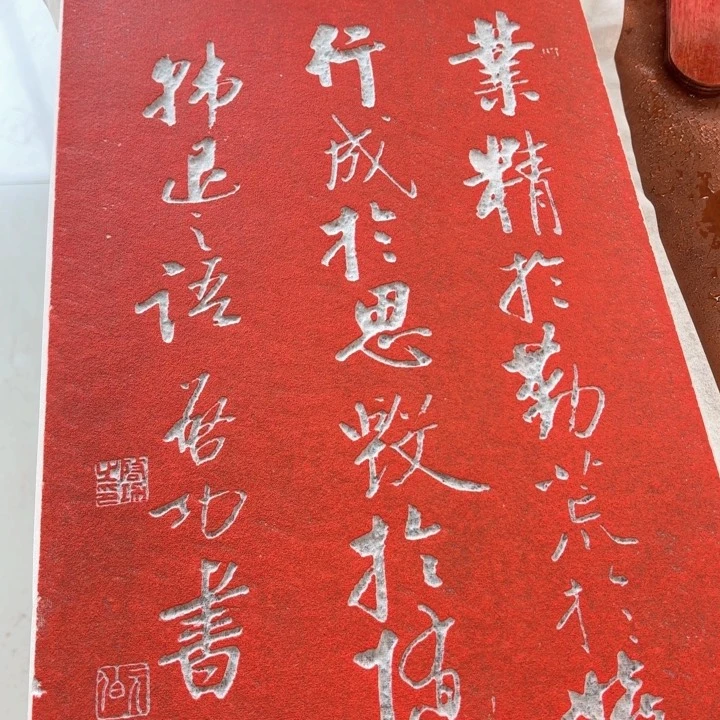 業精於勤荒於嬉
行成於思毀於隨
韓退之語 啓功書
元伯